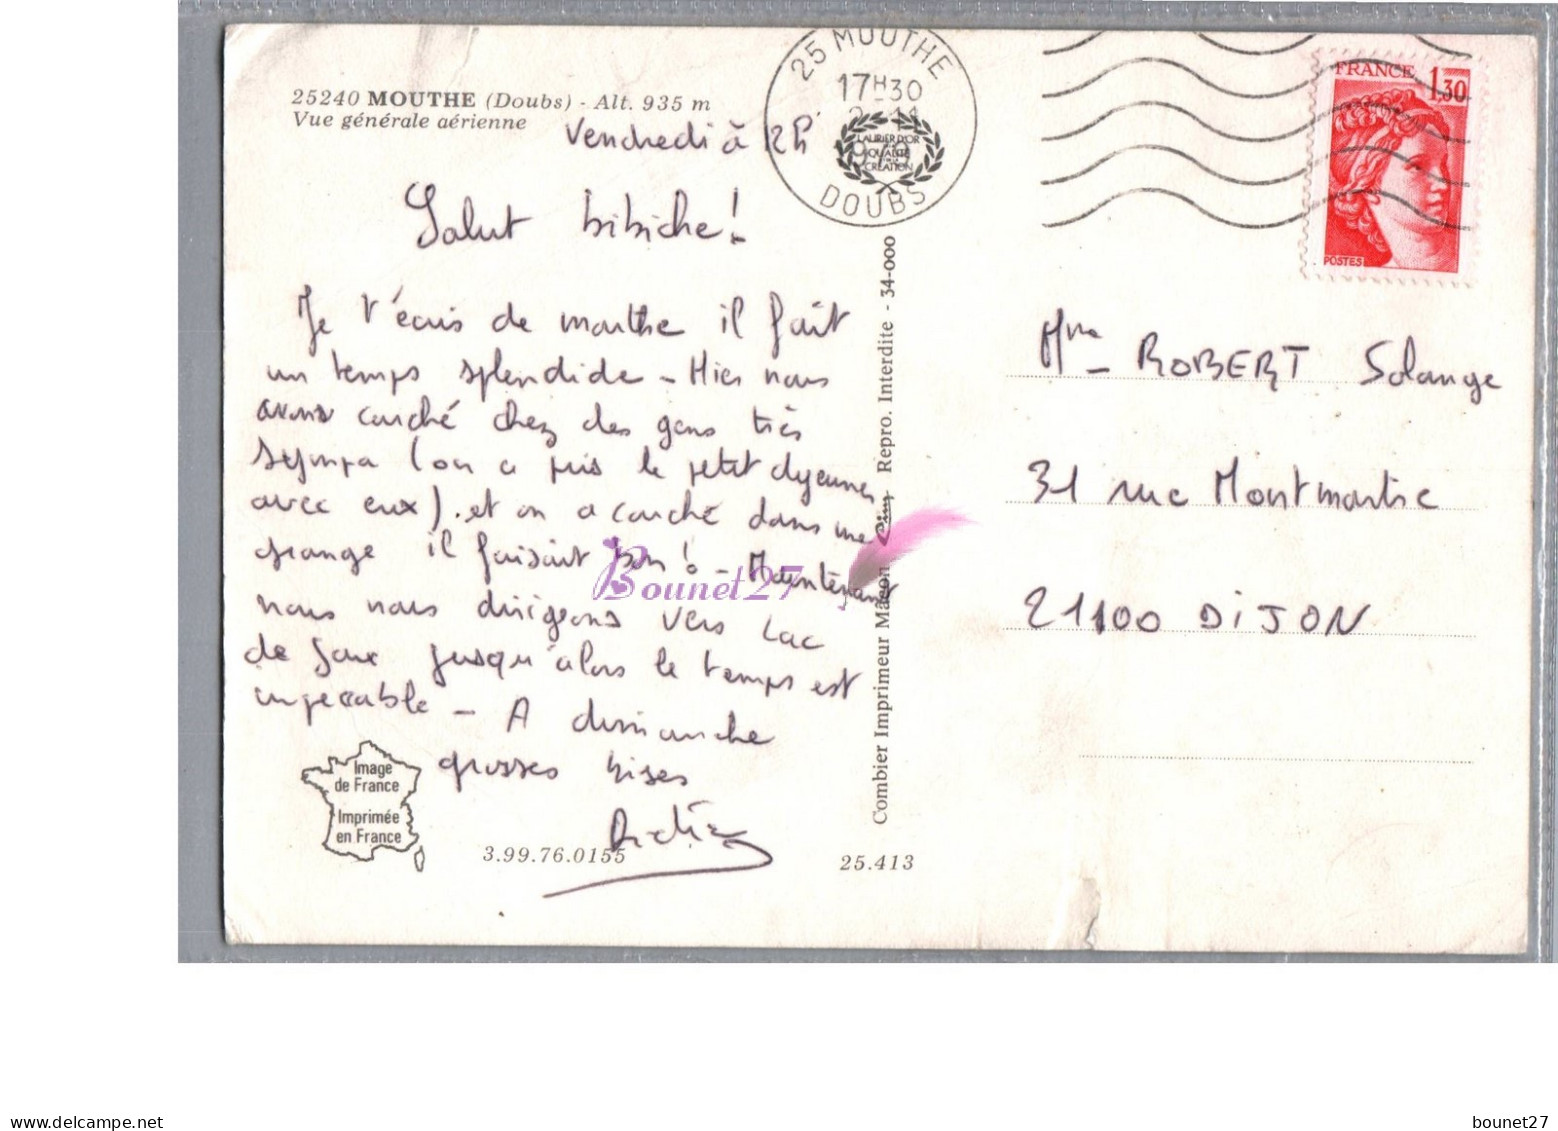 25240 MOUTHE (Doubs) - Alt. 935 m
Vue générale aérienne
Vendredi à 12h
Salut bibiche!
Je t'écris de mouthe il fait
un temps splendide - Hier nous
avons couché chez des gens très
sympa (on a pris le petit dejeuner
avec eux). et on a couché dans une
grange il faisait bon! - Maintenant
nous nous dirigeons vers Lac
de joux jusqu'alors le temps est
impeccable - A dimanche
grosses bises
Image
de France
Imprimée
en France
3.99.76.0155
25.413
Combier Imprimeur Mâcon Cim Repro. Interdite - 34-000
25 MOUTHE
17H30
DOUBS
LAURIER D'OR
QUALITE
CREATION
FRANCE 1,30
POSTES
Mme ROBERT Solange
31 rue Montmartre
21100 DIJON
Bounet27
delcampe.net
bounet27